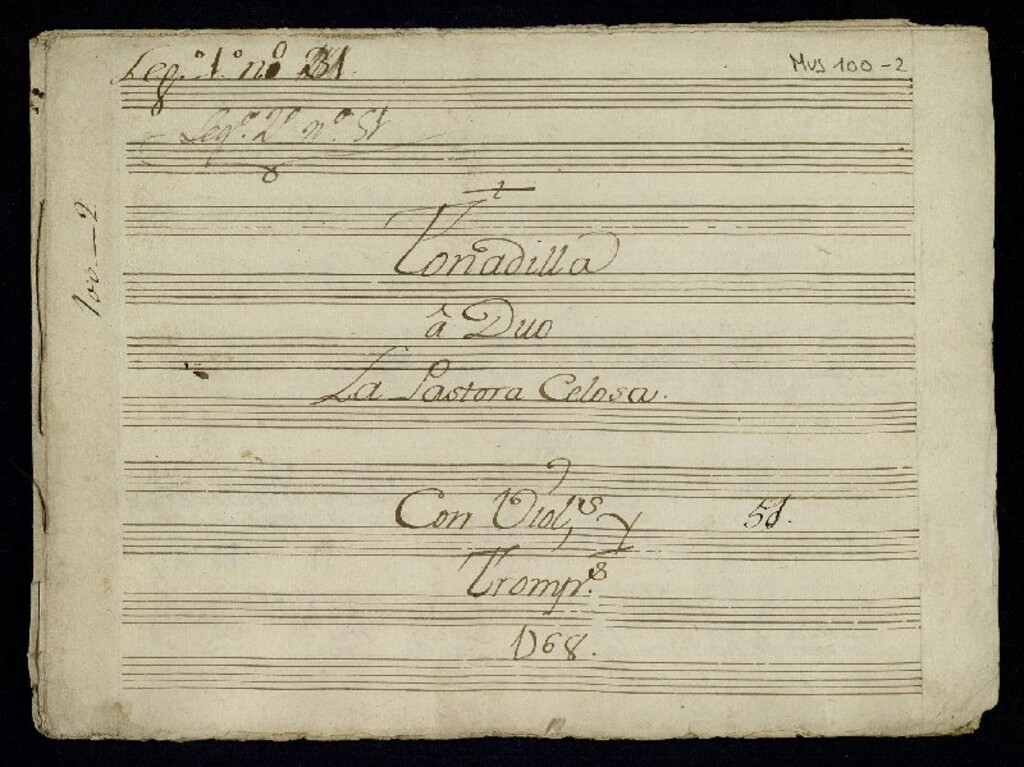 Leg.º 1.º nº 31.
Mus 100-2
Leg.º 2º n.º 51
100-2
Tonadilla
â Duo
La Pastora Celosa.
Con Viol,s y
51.
Tromp.s
1768.